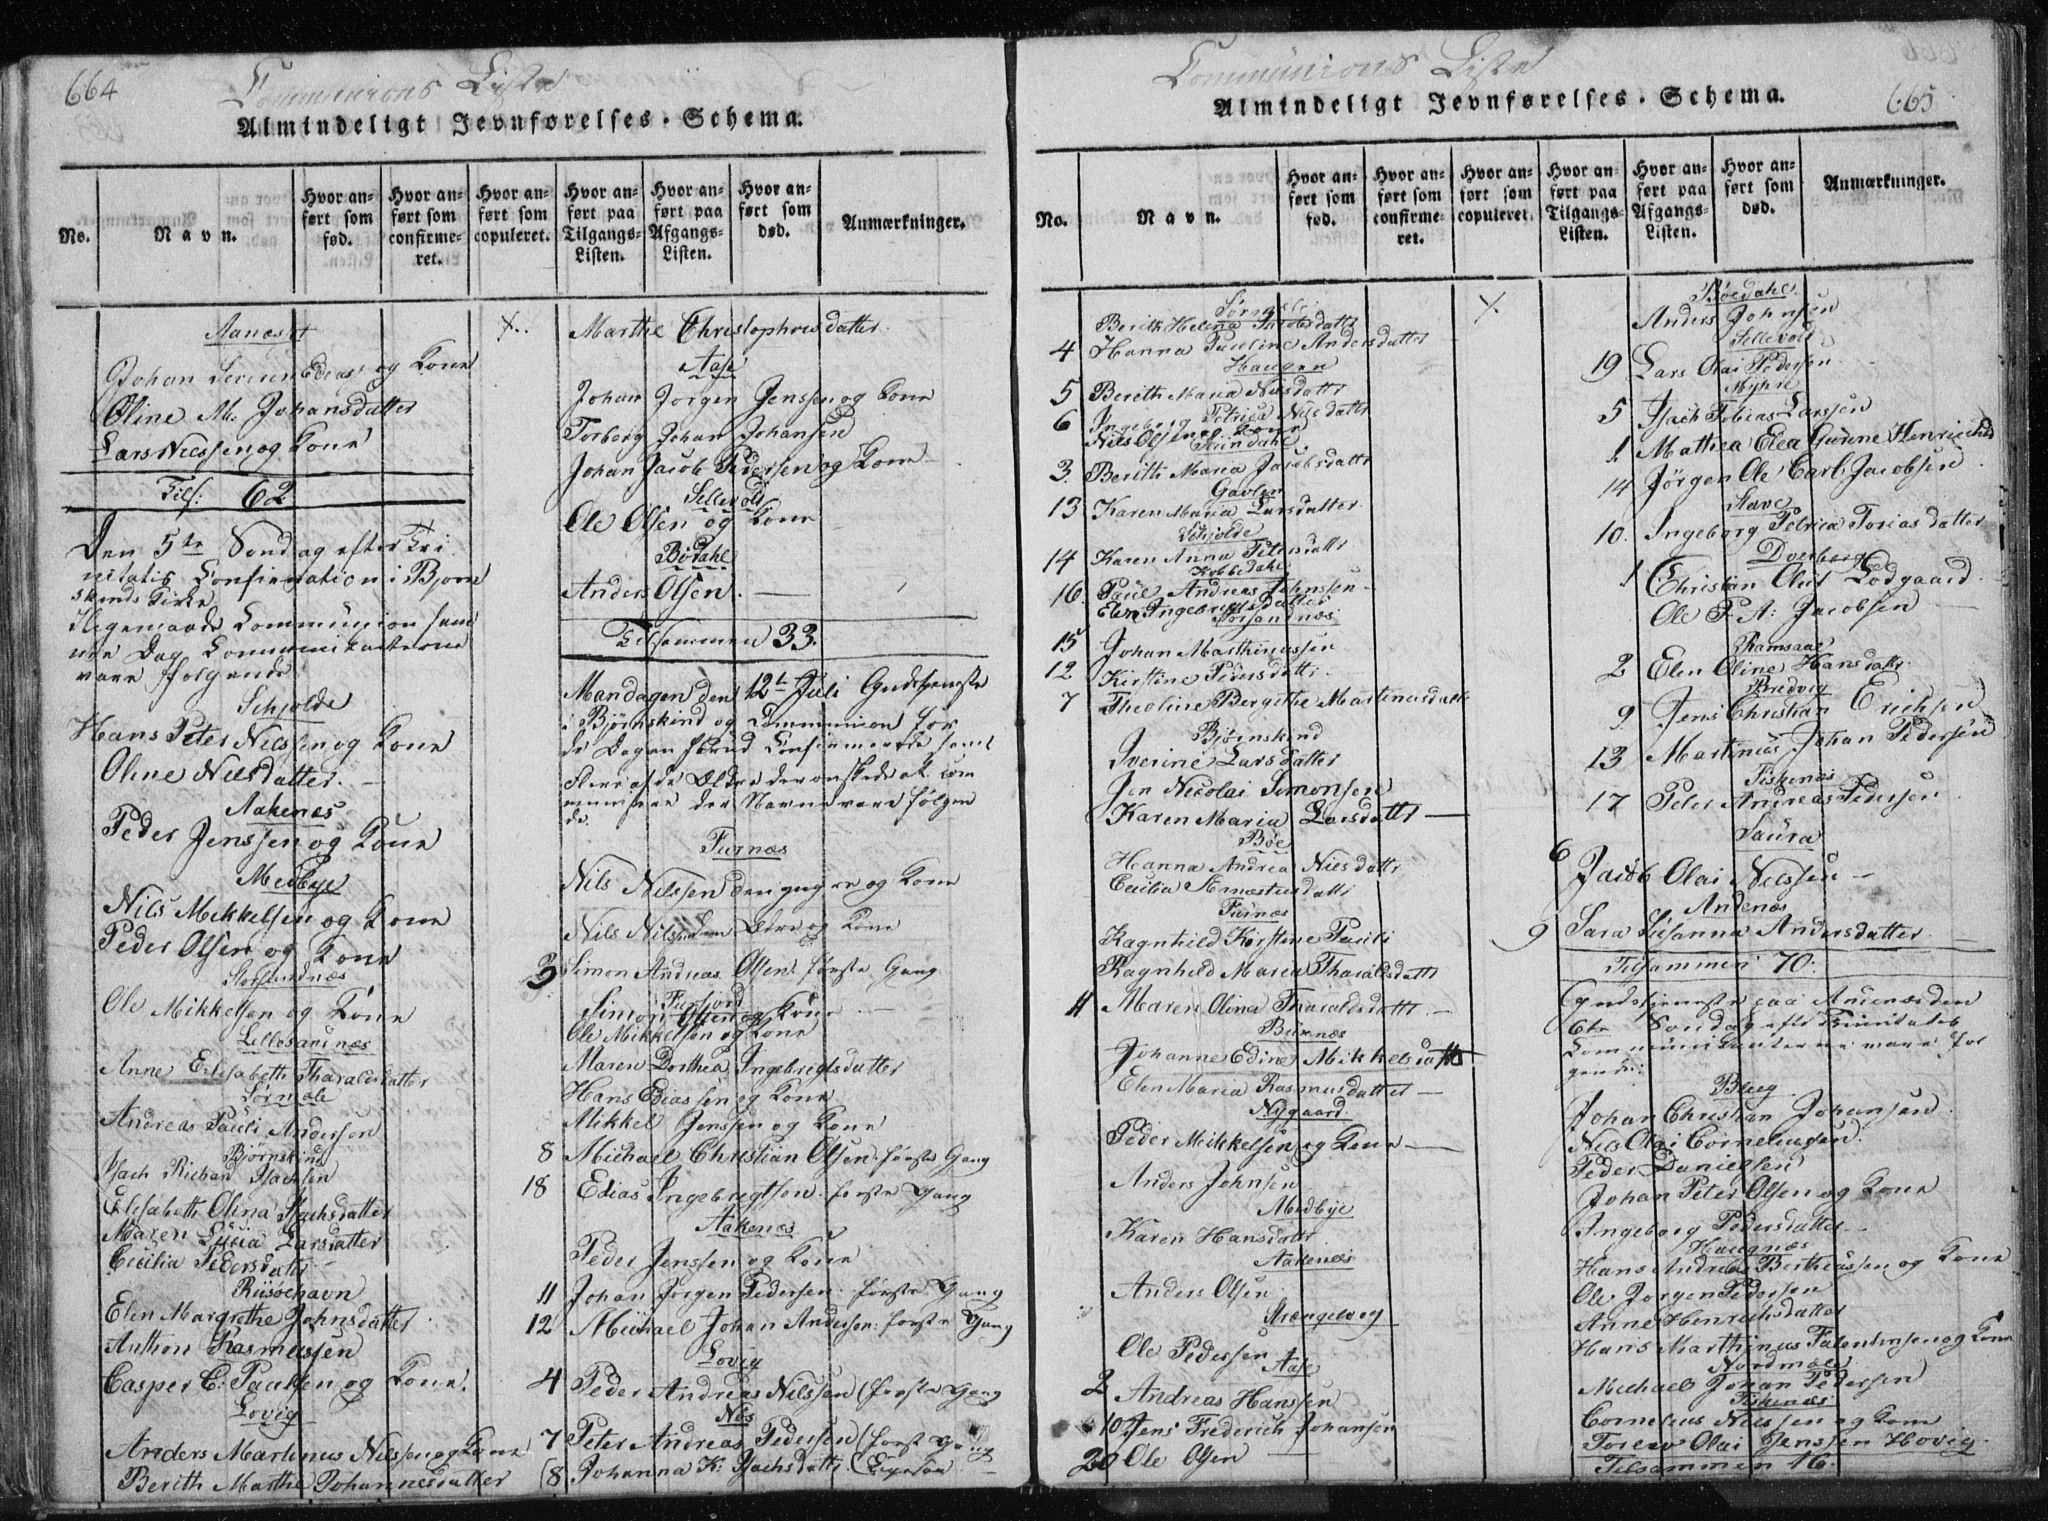 664
Communions Liste
Almindeligt Jevnførelses-Schema.
No.
Navn.
Hvor anført som fød.
Hvor anført som confirmeret.
Hvor anført som copuleret.
Hvor anført paa Tilgangs-Listen.
Hvor anført paa Afgangs-Listen.
Hvor anført som død.
Anmærkninger.
Aanes
Johan Serenus Edias og Kone
Oline M. Johansdatter
Lars Nielsen og Kone
Tils: 62
Den 5te Søndag efter Tri
nitatis Confirmation i Bjørn
skinds Kirke
Communion sam
me Dag Communikanterne
vare følgende
Schjolde
Hans Peter Nilssen og Kone
Oline Nilsdatter
Aakenes
Peder Jenssen og Kone
Medbye
Nils Mikkelsen og Kone
Peder Olsen og Kone
Storsandnæs
Ole Mikkelsen og Kone
Lillesandnæs
Anne Elisabeth Tharaldsdatter
Sørmele
Andreas Pauli Andersen
Bjørnskind
Isach Richard Isachsen
Elisabeth Olina Isachsdatter
Maren Lydia Larsdatter
Cecilia Pedersdatter
Riisøehavn
Elen Margrethe Johnsdatter
Anthon Rasmussen
Casper C. Paulsen og Kone
Lovig
Anders Martinus Nilssen og Kone
Berith Marthe Johannesdatter
Marthe Christophersdatter
Aase
Johan Jørgen Jenssen og Kone
Torberg Johan Johansen
Johan Jacob Pedersen og Kone
Sellevold
Ole Olsen og Kone
Bødahl
Anders Olsen
Tilsammen 33.
Mandagen den 12te Juli Gudstjeneste
i Bjørnskind og Communion for
de Dagen forud Confirmerede samt
flere af de Ældre der ønskede at com
municere der Navne vare følgen
de
Furnæs
Nils Nilssen den yngre og Kone
Nils Nilssen den Ældre og Kone
3 Simon Andreas Olsen første Gang
Furfjord
Simon Olsen og Kone
Ole Mikkelsen og Kone
Maren Dorthea Ingebrigtsdatter
Hans Ediassen og Kone
Mikkel Jenssen og Kone
8 Michael Christian Olsen første Gang
18 Edias Ingebrigtsen første Gang
Aakenes
Peder Jenssen og Kone
11 Johan Jørgen Pedersen første Gang
12 Michael Johan Andersen første Gang
Lovig
4 Peder Andreas Nilssen (første Gang
Næs
7 Peter Andreas Pedersen (første Gang
(8 Johanna K. Isachsdatter
665
Communions Liste
Almindeligt Jevnførelses-Schema.
No.
Navn.
Hvor anført som fød.
Hvor anført som confirmeret.
Hvor anført som copuleret.
Hvor anført paa Tilgangs-Listen.
Hvor anført paa Afgangs-Listen.
Hvor anført som død.
Anmærkninger.
Berith Helena Jacobsdatter
4 Hanna Pauline Andersdatter
Haugen
5 Berith Maria Nilsdatter
6 Ingeborg Petrica Nilsdatter
Nils Olsen og Kone
3. Berith Maria Jacobsdatter
Gavlen
13 Karen Maria Larsdatter
Schjolde
14 Karen Anna Petersdatter
Kobbedahl
16. Paul Andreas Johnssen
Elen Ingebrigtsdatter
Storsandnæs
15 Johan Marthinussen
12 Kirstine Pedersdatter
7 Theoline Bergithe Martinusdatter
Bjørnskind
Iverine Larsdatter
Jen Nicolai Simonsen
Karen Maria Larsdatter
Bøe
Hanna Andrea Nilsdatter
Cecilia
Furnæs
Ragnhild Kirstine Pauli
Ragnhild Maria Tharaldsdatter
11 Maren Olina Tharaldsdatter
Buknæs
Johanne Edine Mikkelsdatter
Elen Maria Rasmusdatter
Nygaard
Peder Mikkelsen og Kone
Anders Johnsen
Medbye
Karen Hansdatter
Aakenæs
Anders Olsen
Strængelvog
Ole Pedersen
Aase
2 Andreas Hanssen
10 Jens Frederich Johansen
20 Ole Olsen
Bøedahl
Anders Johnsen
Sellevold
19 Lars Olai Pedersen
Myhre
5 Isach Tobias Larssen
1 Mathea Elea Henrichsd
14 Jørgen Ole Carl Jacobsen
Stave
10. Ingeborg Petrica Tobiasdatter
Dverberg
1 Christian Oluf Lodgaard
Ole P. A. Jacobsen
Ramsaae
2 Elen Oline Hansdatter
Bredvig
9 Jens Christian Erichsen
13 Martinus Johan Pedersen
Fiskenæs
17 Peter Andreas Pedersen
Saura
6 Jacob Olai Nilssen
Andenæs
9 Sara Susanna Andersdatter
Tilsammen 70.
Gudstjeneste paa Andenæs den
6te Søndag efter Trinitatis
Communikanterne vare føl
gende:
Bleeg
Johan Christian Johansen
Nils Olai Corneliussen
Peder Danielsen
Johan Peter Olsen og Kone
Ingeborg Pedersdatter
Haugnæs
Hans Andreas Bertheussen og Kone
Ole Jørgen Pedersen
Anne Henrichsdatter
Hans Marthinus Falentinsen og Kone
Nordmele
Michael Johan Pedersen
Fiskenæs
Cornelius Nilssen og Kone
Olai Jenssen Hovig
Tilsammen 16.